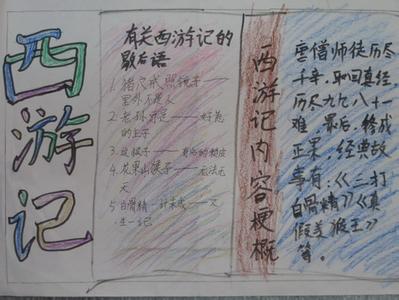 西游记
有关西游记的
歇后语
1. 猪八戒照镜子——
里外不是人
2. 老孙
的
3.
4. 花果山猴子——无法无
天
5. 白骨精
生一计
西游记内容梗概
唐僧师徒历尽
千辛，取回真经
历尽九九八十一
难，最后，修成
正果，经典故
事有：《三打
白骨精》《真
假美猴王》
等。